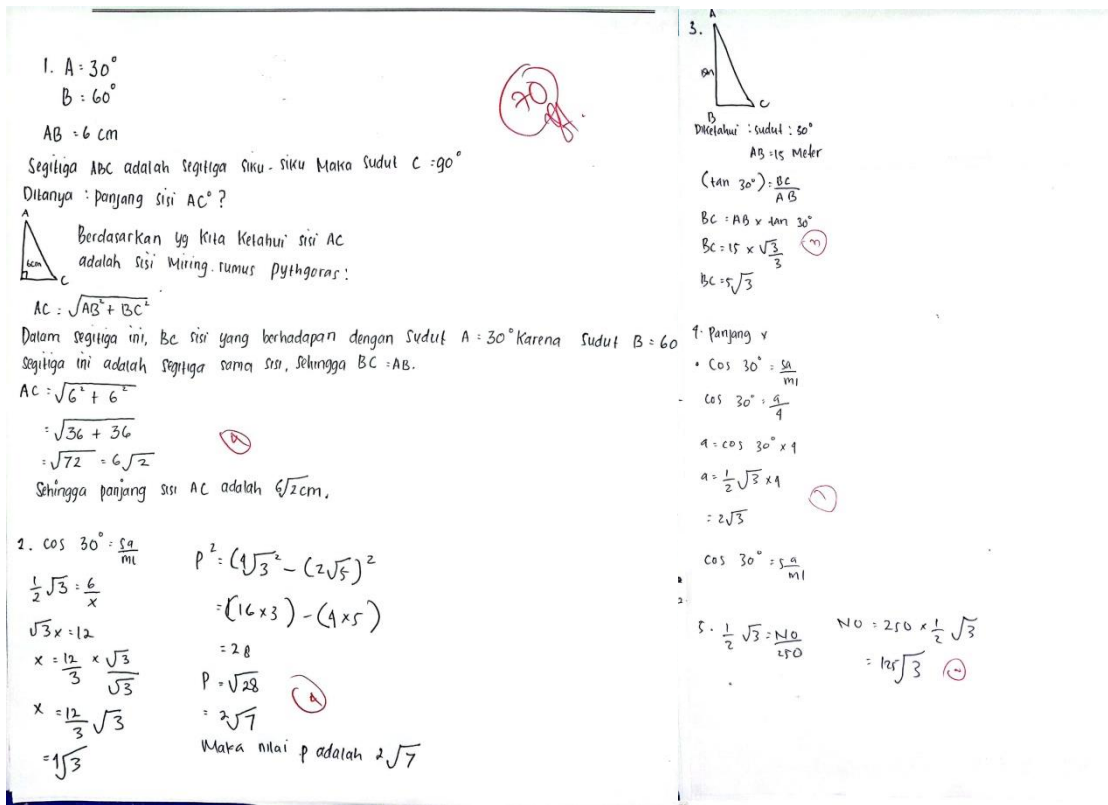 1. A = 30°
B = 60°
AB = 6 cm
Segitiga ABC adalah segitiga siku-siku Maka sudut C = 90°
Ditanya : panjang sisi AC° ?
A
6cm
C
Berdasarkan yg kita ketahui sisi AC
adalah sisi miring. rumus pythgoras :
AC = √AB² + BC²
Dalam segitiga ini, BC sisi yang berhadapan dengan sudut A = 30° karena sudut B = 60
segitiga ini adalah segitiga sama sisi, sehingga BC = AB.
AC = √6² + 6²
= √36 + 36
= √72 = 6√2
Sehingga panjang sisi AC adalah 6√2cm.
70
2. cos 30° = sa/mi
1/2 √3 = 6/x
√3x = 12
x = 12/3 × √3/√3
x = 12/3 √3
= 4√3
p² = (4√3² - (2√5)²
= (16×3) - (4×5)
= 28
P = √28
= 2√7
Maka nilai p adalah 2√7
3.
A
B
C
Diketahui : sudut : 30°
AB = 15 Meter
(tan 30°) = BC/AB
BC = AB × tan 30°
BC = 15 × √3/3
BC = 5√3
4. Panjang x
• Cos 30° = sa/mi
cos 30° = a/4
a = cos 30° × 4
a = 1/2 √3 × 4
= 2√3
cos 30° = sa/mi
5. 1/2 √3 = NO/250
NO = 250 × 1/2 √3
= 125√3